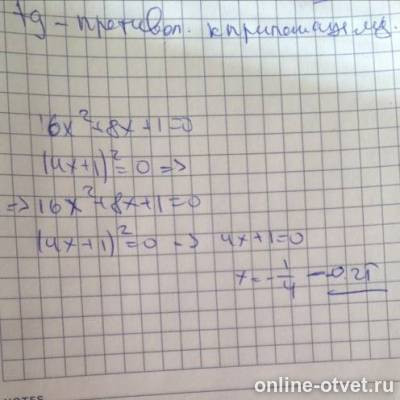 tg - противол. к прилежащему.
16x²+8x+1=0
(4x+1)²=0 =>
=> 16x²+8x+1=0
(4x+1)²=0 -> 4x+1=0
x=-1/4 -0,25
NOTES
online-otvet.ru